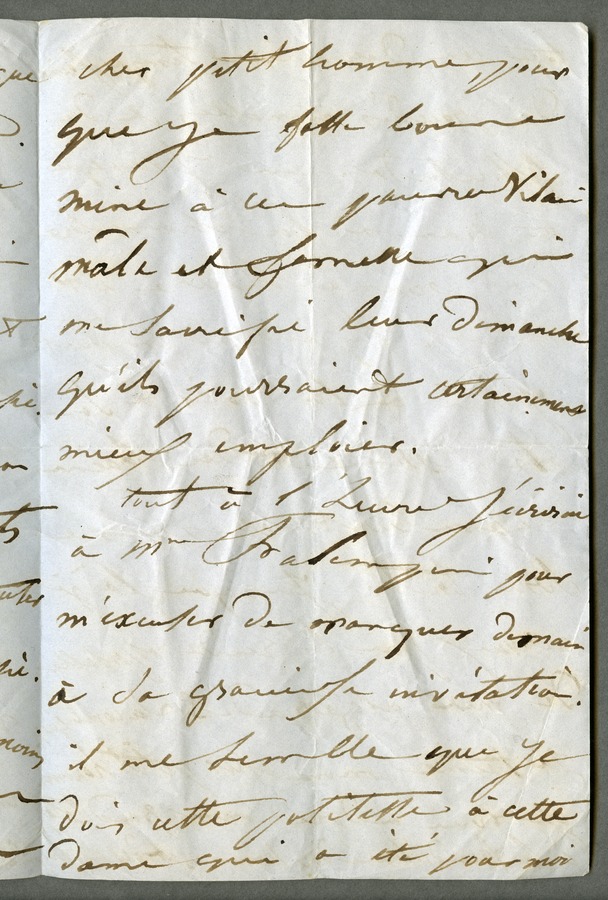 cher petit homme, pour
que je fasse bonne
mine à ce pauvre Vilain
mâle et femelle qui
me sacrifie leur Dimanche
qu'ils pourraient certainement
mieux emploier.
tout à l'heure j'écrirai
à Mme pour
m'excuser de manquer demain
à sa gracieuse invitation.
il me semble que je
dois cette politesse à cette
dame qui a été pour moi